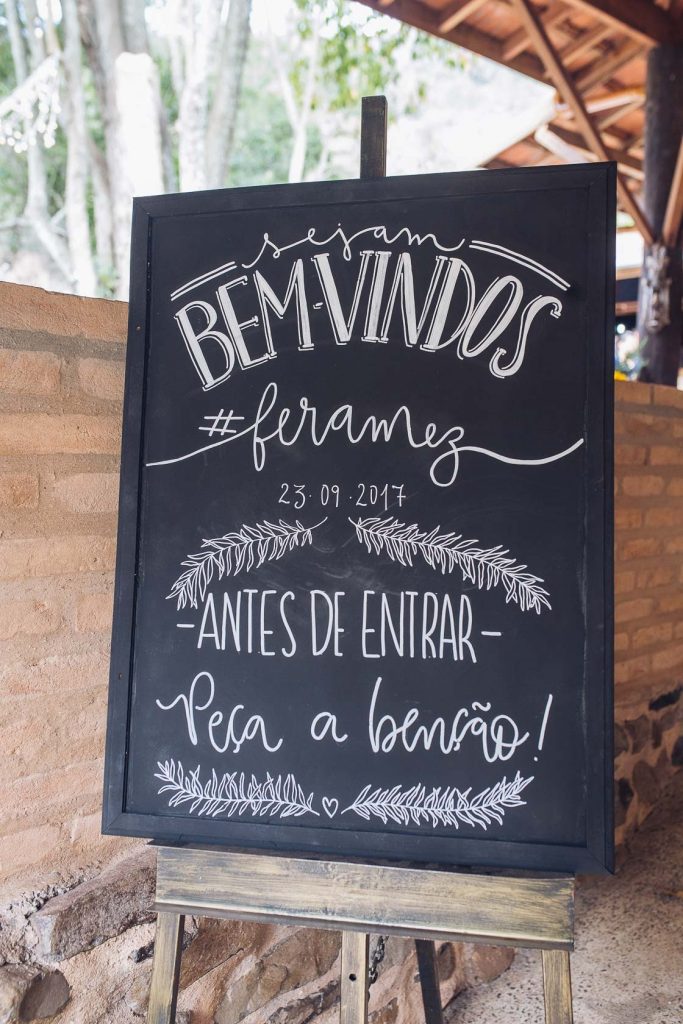 sejam
BEM-VINDOS
#feramez
23·09·2017
-ANTES DE ENTRAR-
Peça a benção!